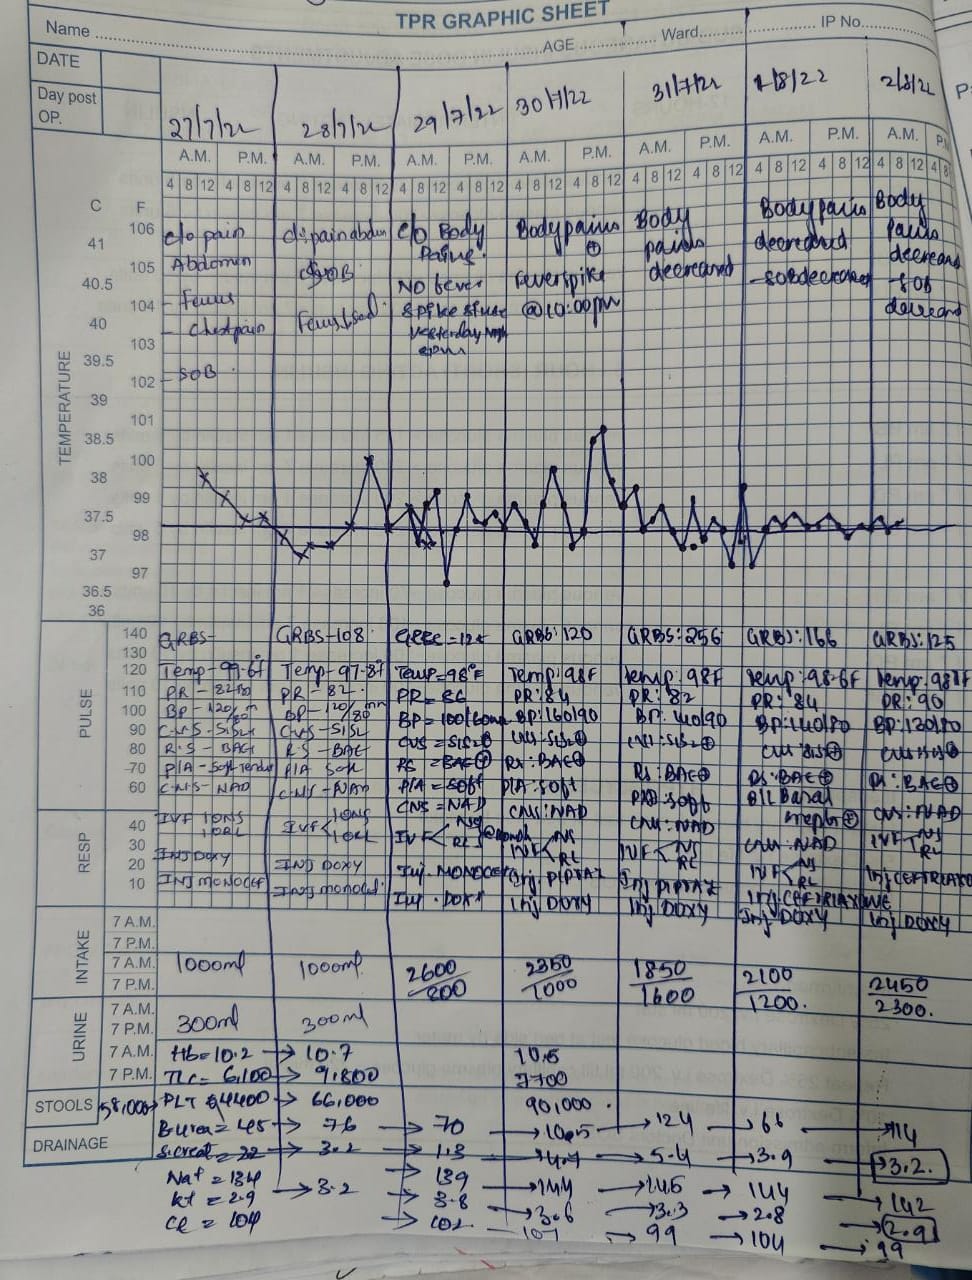 TPR GRAPHIC SHEET
Name AGE Ward IP No
DATE
Day post OP.
27/7/22 28/7/22 29/7/22 30/7/22 31/7/22 1/8/22 2/8/22
A.M. P.M. A.M. P.M. A.M. P.M. A.M. P.M. A.M. P.M. A.M. P.M. A.M. P.
4 8 12 4 8 12 4 8 12 4 8 12 4 8 12 4 8 12 4 8 12 4 8 12 4 8 12 4 8 12 4 8 12 4 8 12 4 8 12 4 8
C F
TEMPERATURE
106
41
105
40.5
104
40
103
39.5
102
39
101
38.5
100
38
99
37.5
98
37
97
36.5
36
c/o pain
Abdomen
- Fever
- Chest pain
- SOB
c/o pain abdomen
SOB
c/o Body
Pains.
NO fever
Spike since
yesterday
Body pains
⊕
Fever spike
@10:00pm
Body
pains
decreased
Body pains
decreased
- SOB decreased
Body
pains
decreased
- SOB
decreased
PULSE
140
130
120
110
100
90
80
70
60
GRBS- GRBS-108 GRBS=124 GRBS:120 GRBS:256 GRBS:166 GRBS:125
Temp-99.6f Temp-97.8f Temp=98°F Temp:98F Temp:98F Temp:98.6F
PR-82 PR-82 PR=86 PR:84 PR:82 PR:84 PR:90
BP-120/80 BP-120/80 mm BP=100/60 BP:160/90 BP:140/90 BP:140/80 BP:130/80
CVS-S1S2+ CVS-S1S2 CVS=S1S2⊕ CVS-S1S2⊕ CVS:S1S2⊕ CVS S1S2⊕
R.S-BAE+ RS-BAE RS=BAE⊕ RS:BAE⊕ RS:BAE⊕ RS:BAE⊕ RS:BAE⊕
P/A-Soft tender P/A Soft P/A=Soft P/A:Soft P/A:Soft B/L Basal
CNS-NAD CNS-NAD CNS=NAD CNS:NAD CNS:NAD CNS:NAD CNS:NAD
RESP
40
30
20
10
IVF 10NS
10RL
IVF 10NS
10RL
IVF NS
RL
IVF NS
RL
IVF NS
RL
IVF NS
RL
IVF NS
RL
INJ DOXY INJ DOXY Inj. MONOCEF Inj. PIPTAZ Inj PIPTAZ Inj CEFTRIAXONE Inj CEFTRIAXO
INJ MONOCEF INJ monocef Inj. DOXY Inj DOXY Inj DOXY Inj DOXY Inj DOXY
INTAKE
7 A.M.
7 P.M.
7 A.M.
7 P.M.
1000ml 1000ml 2600/200 2350/1000 1850/1600 2100/1200. 2450/2300.
URINE
7 A.M.
7 P.M.
7 A.M.
7 P.M.
300ml 300ml
Hb=10.2 → 10.7 10.6
TLC= 6,100 → 9,800 7700
STOOLS 58,000 PLT 54400 → 66,000 90,000.
DRAINAGE
Burea=45 → 76 → 70 → 105 → 124 → 66 → 114
S.creat → 3.2 → 1.3 → 4.7 → 5.4 → 3.9 → 3.2.
Na+ = 134 → 139 → 144 → 145 → 144 → 142
K+ = 2.9 → 3.2 → 3.8 → 3.6 → 3.3 → 2.8 → 2.9
Cl = 104 → 102 107 → 99 → 104 → 99